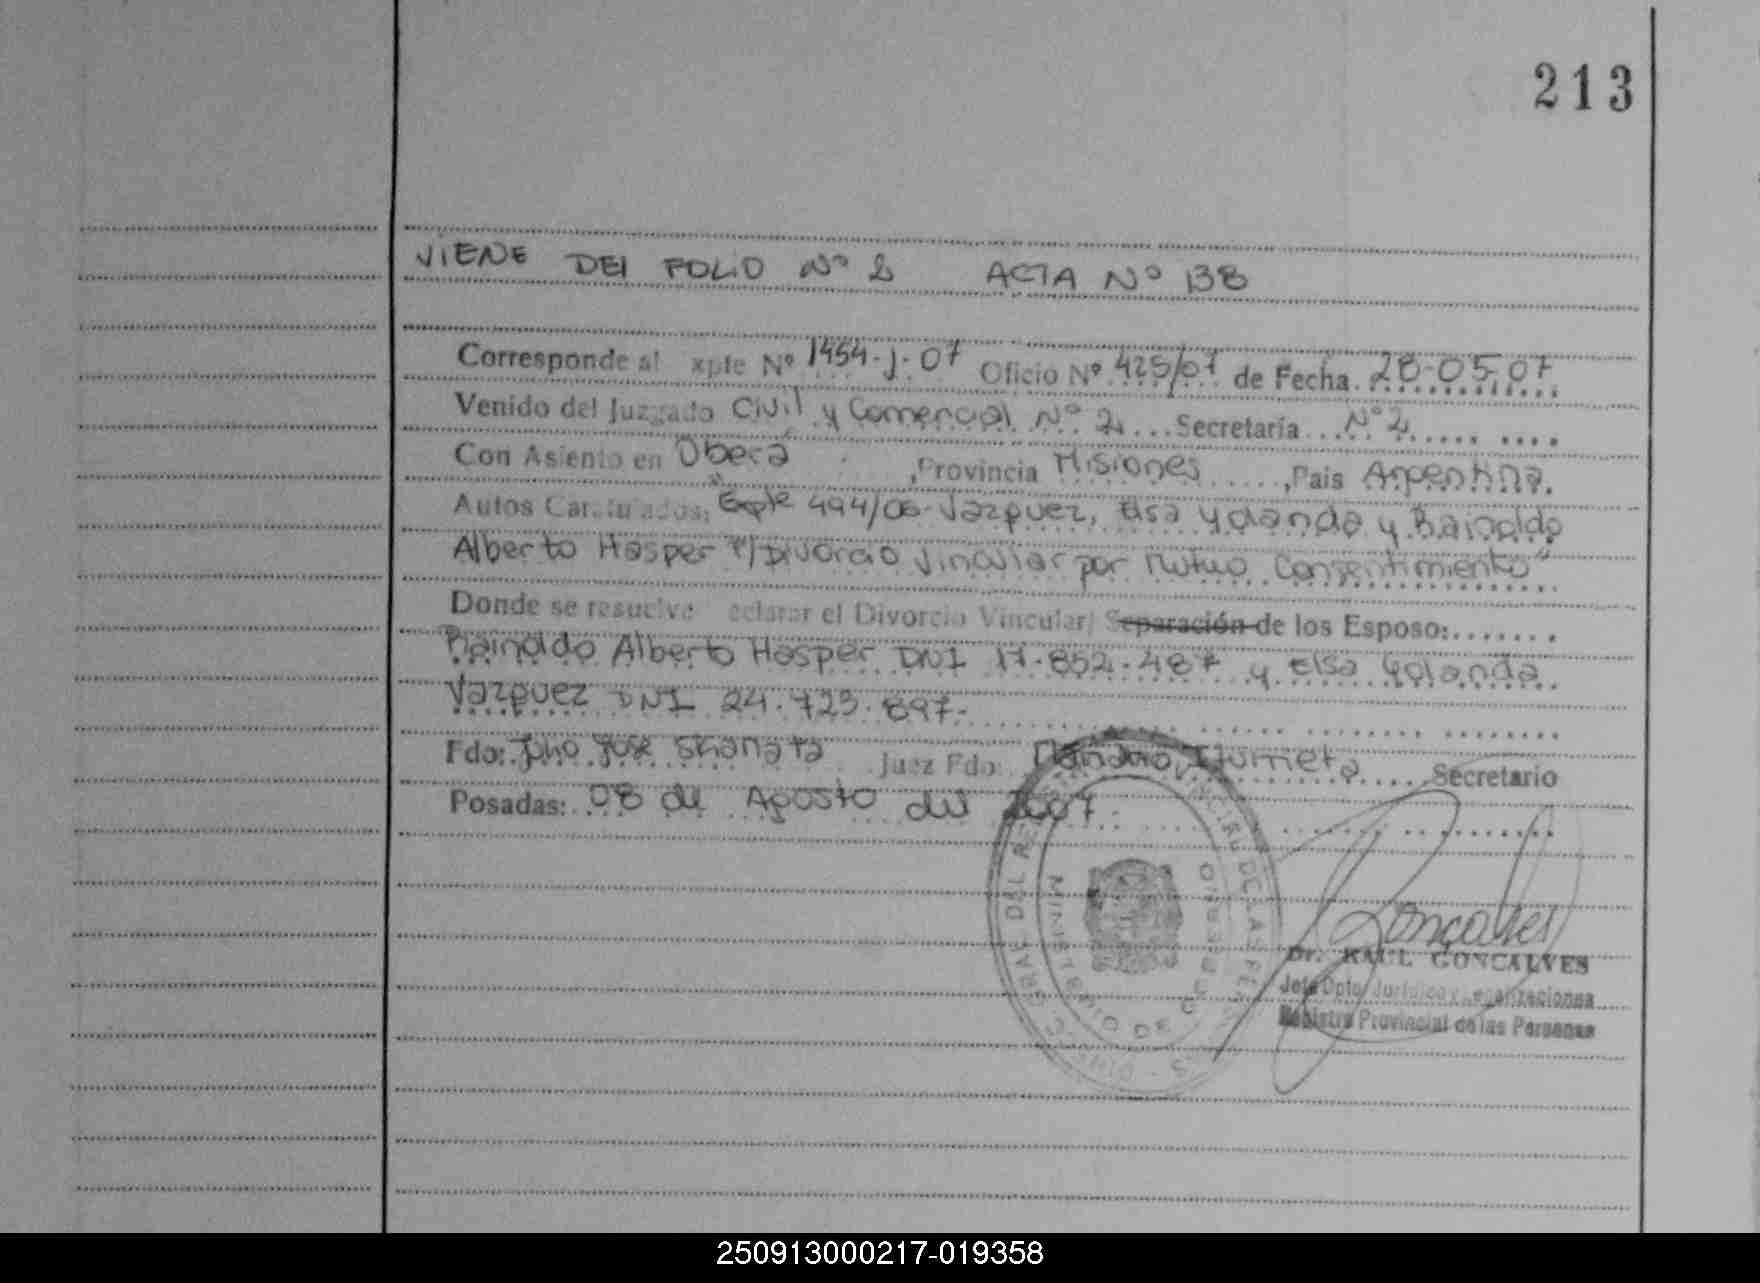 213
VIENE DEL FOLIO Nº 2 ACTA Nº 138
Corresponde al xpte Nº 1454-J-07 Oficio Nº 425/07 de Fecha 28-05-07
Venido del Juzgado Civil y Comercial Nº 2 Secretaría Nº 2
Con Asiento en Oberá, Provincia Misiones, Pais Argentina.
Autos Caratulados: "Expte 494/06-Vazquez, Elsa Yolanda y Rainoldo
Alberto Hasper s/Divorcio Vincular por Mutuo Consentimiento"
Donde se resuelve eclarar el Divorcio Vincular/ Separación de los Esposo:
Rainoldo Alberto Hasper DNI 17.852.487 y Elsa Yolanda
Vazquez DNI 24.723.897-
Fdo: Julio José Juez Fdo: Secretario
Posadas: 08 de Agosto del 2007
Goncalves
Dr. RAUL GONCALVES
Jefe Dpto Jurídico y Legalizaciones
Registro Provincial de las Personas
MINISTERIO DE GOBIERNO
250913000217-019358